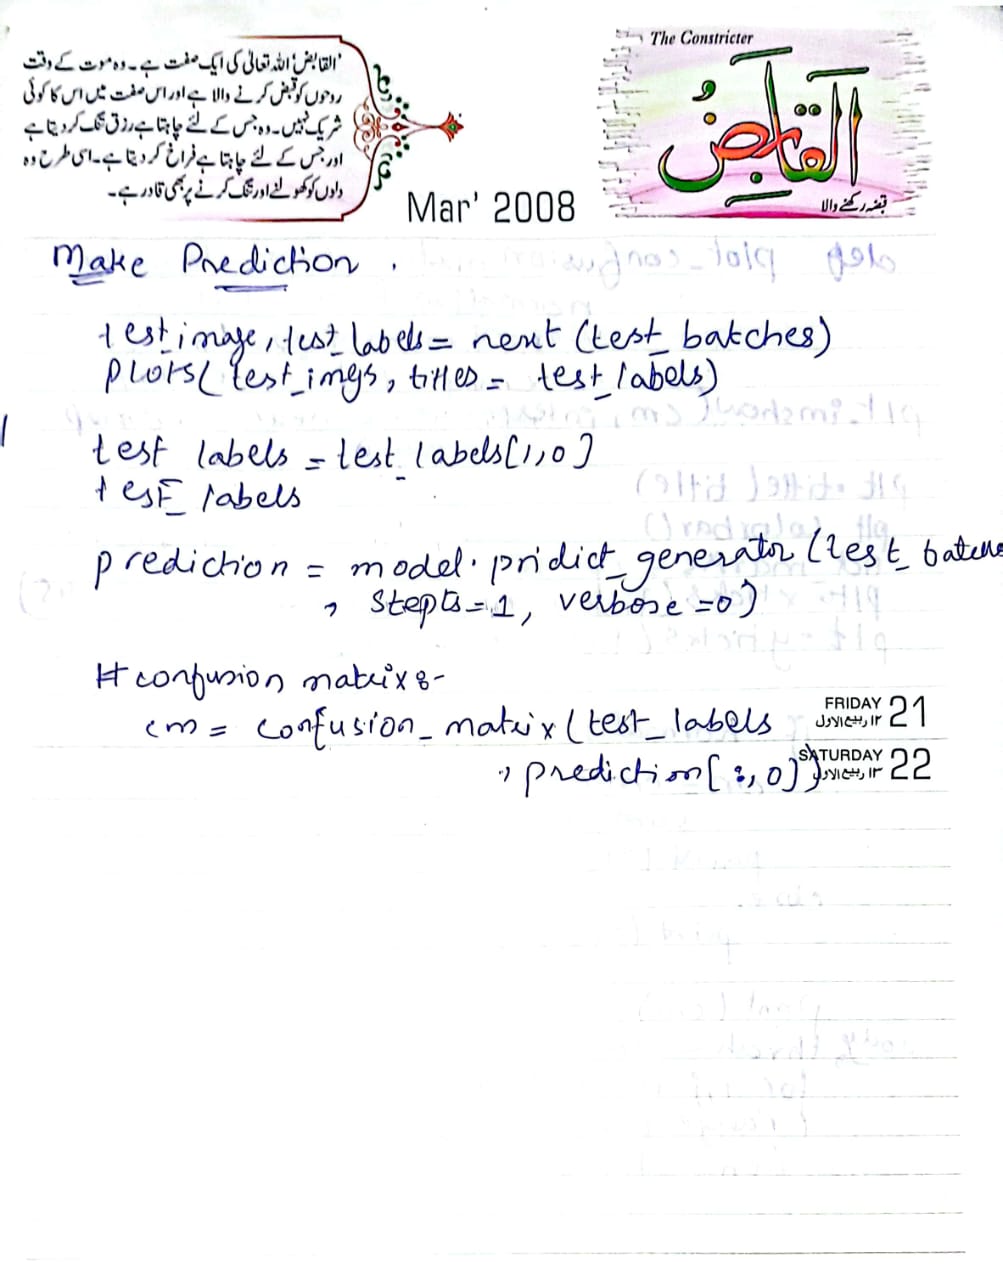 'القابض' اللہ تعالیٰ کی ایک صفت ہے۔ وہ موت کے وقت
روحوں کو قبض کرنے والا ہے اور اس صفت میں اس کا کوئی
شریک نہیں۔ وہ جس کے لئے چاہتا ہے رزق تنگ کر دیتا ہے
اور جس کے لئے چاہتا ہے فراغ کر دیتا ہے۔ اسی طرح وہ
دلوں کو کھولنے اور تنگ کرنے پر بھی قادر ہے۔
The Constricter
القابض
قبضہ رکھنے والا
Mar' 2008
Make Prediction .
test_image, test_labels = next (test_batches)
plots( test_imgs, titles = test_labels)
test labels = test_labels[1,0]
test_labels
prediction = model. pridict_generator (test_batche
, steps=1, verbose =0)
# confusion matrix :-
cm = confusion_matrix (test_labels
, prediction[:,0])
FRIDAY 21
۱۲ ربیع الاول
SATURDAY 22
۱۳ ربیع الاول